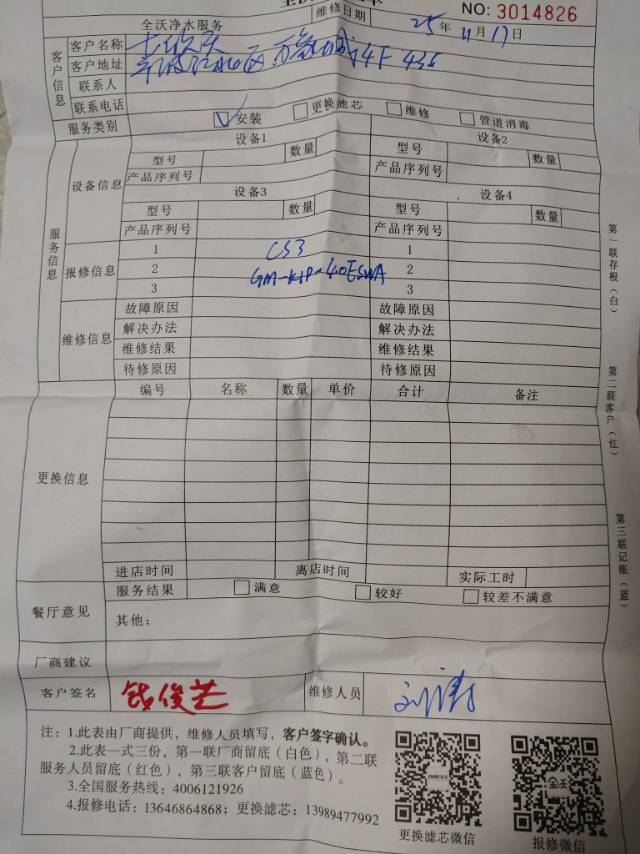 全沃净水服务
维修日期 25年11月17日
NO: 3014826
客户信息
客户名称
客户地址 4F
联系人
联系电话
服务类别 安装 更换滤芯 维修 管道消毒
服务信息
设备信息
设备1 设备2
型号 数量 型号 数量
产品序列号 产品序列号
设备3 设备4
型号 数量 型号 数量
产品序列号 产品序列号
报修信息
1 CS3 1
2 2
3 3
维修信息
故障原因 故障原因
解决办法 解决办法
维修结果 维修结果
待修原因 待修原因
更换信息
编号 名称 数量 单价 合计 备注
进店时间 离店时间 实际工时
餐厅意见
服务结果 满意 较好 较差不满意
其他:
厂商建议
客户签名 钱俊芒 维修人员
注:1.此表由厂商提供,维修人员填写,客户签字确认。
2.此表一式三份,第一联厂商留底(白色),第二联
服务人员留底(红色),第三联客户留底(蓝色)。
3.全国服务热线:4006121926
4.报修电话:13646864868;更换滤芯:13989477992
更换滤芯微信
报修微信
第一联存根(白)
第二联客户(红)
第三联记账(蓝)